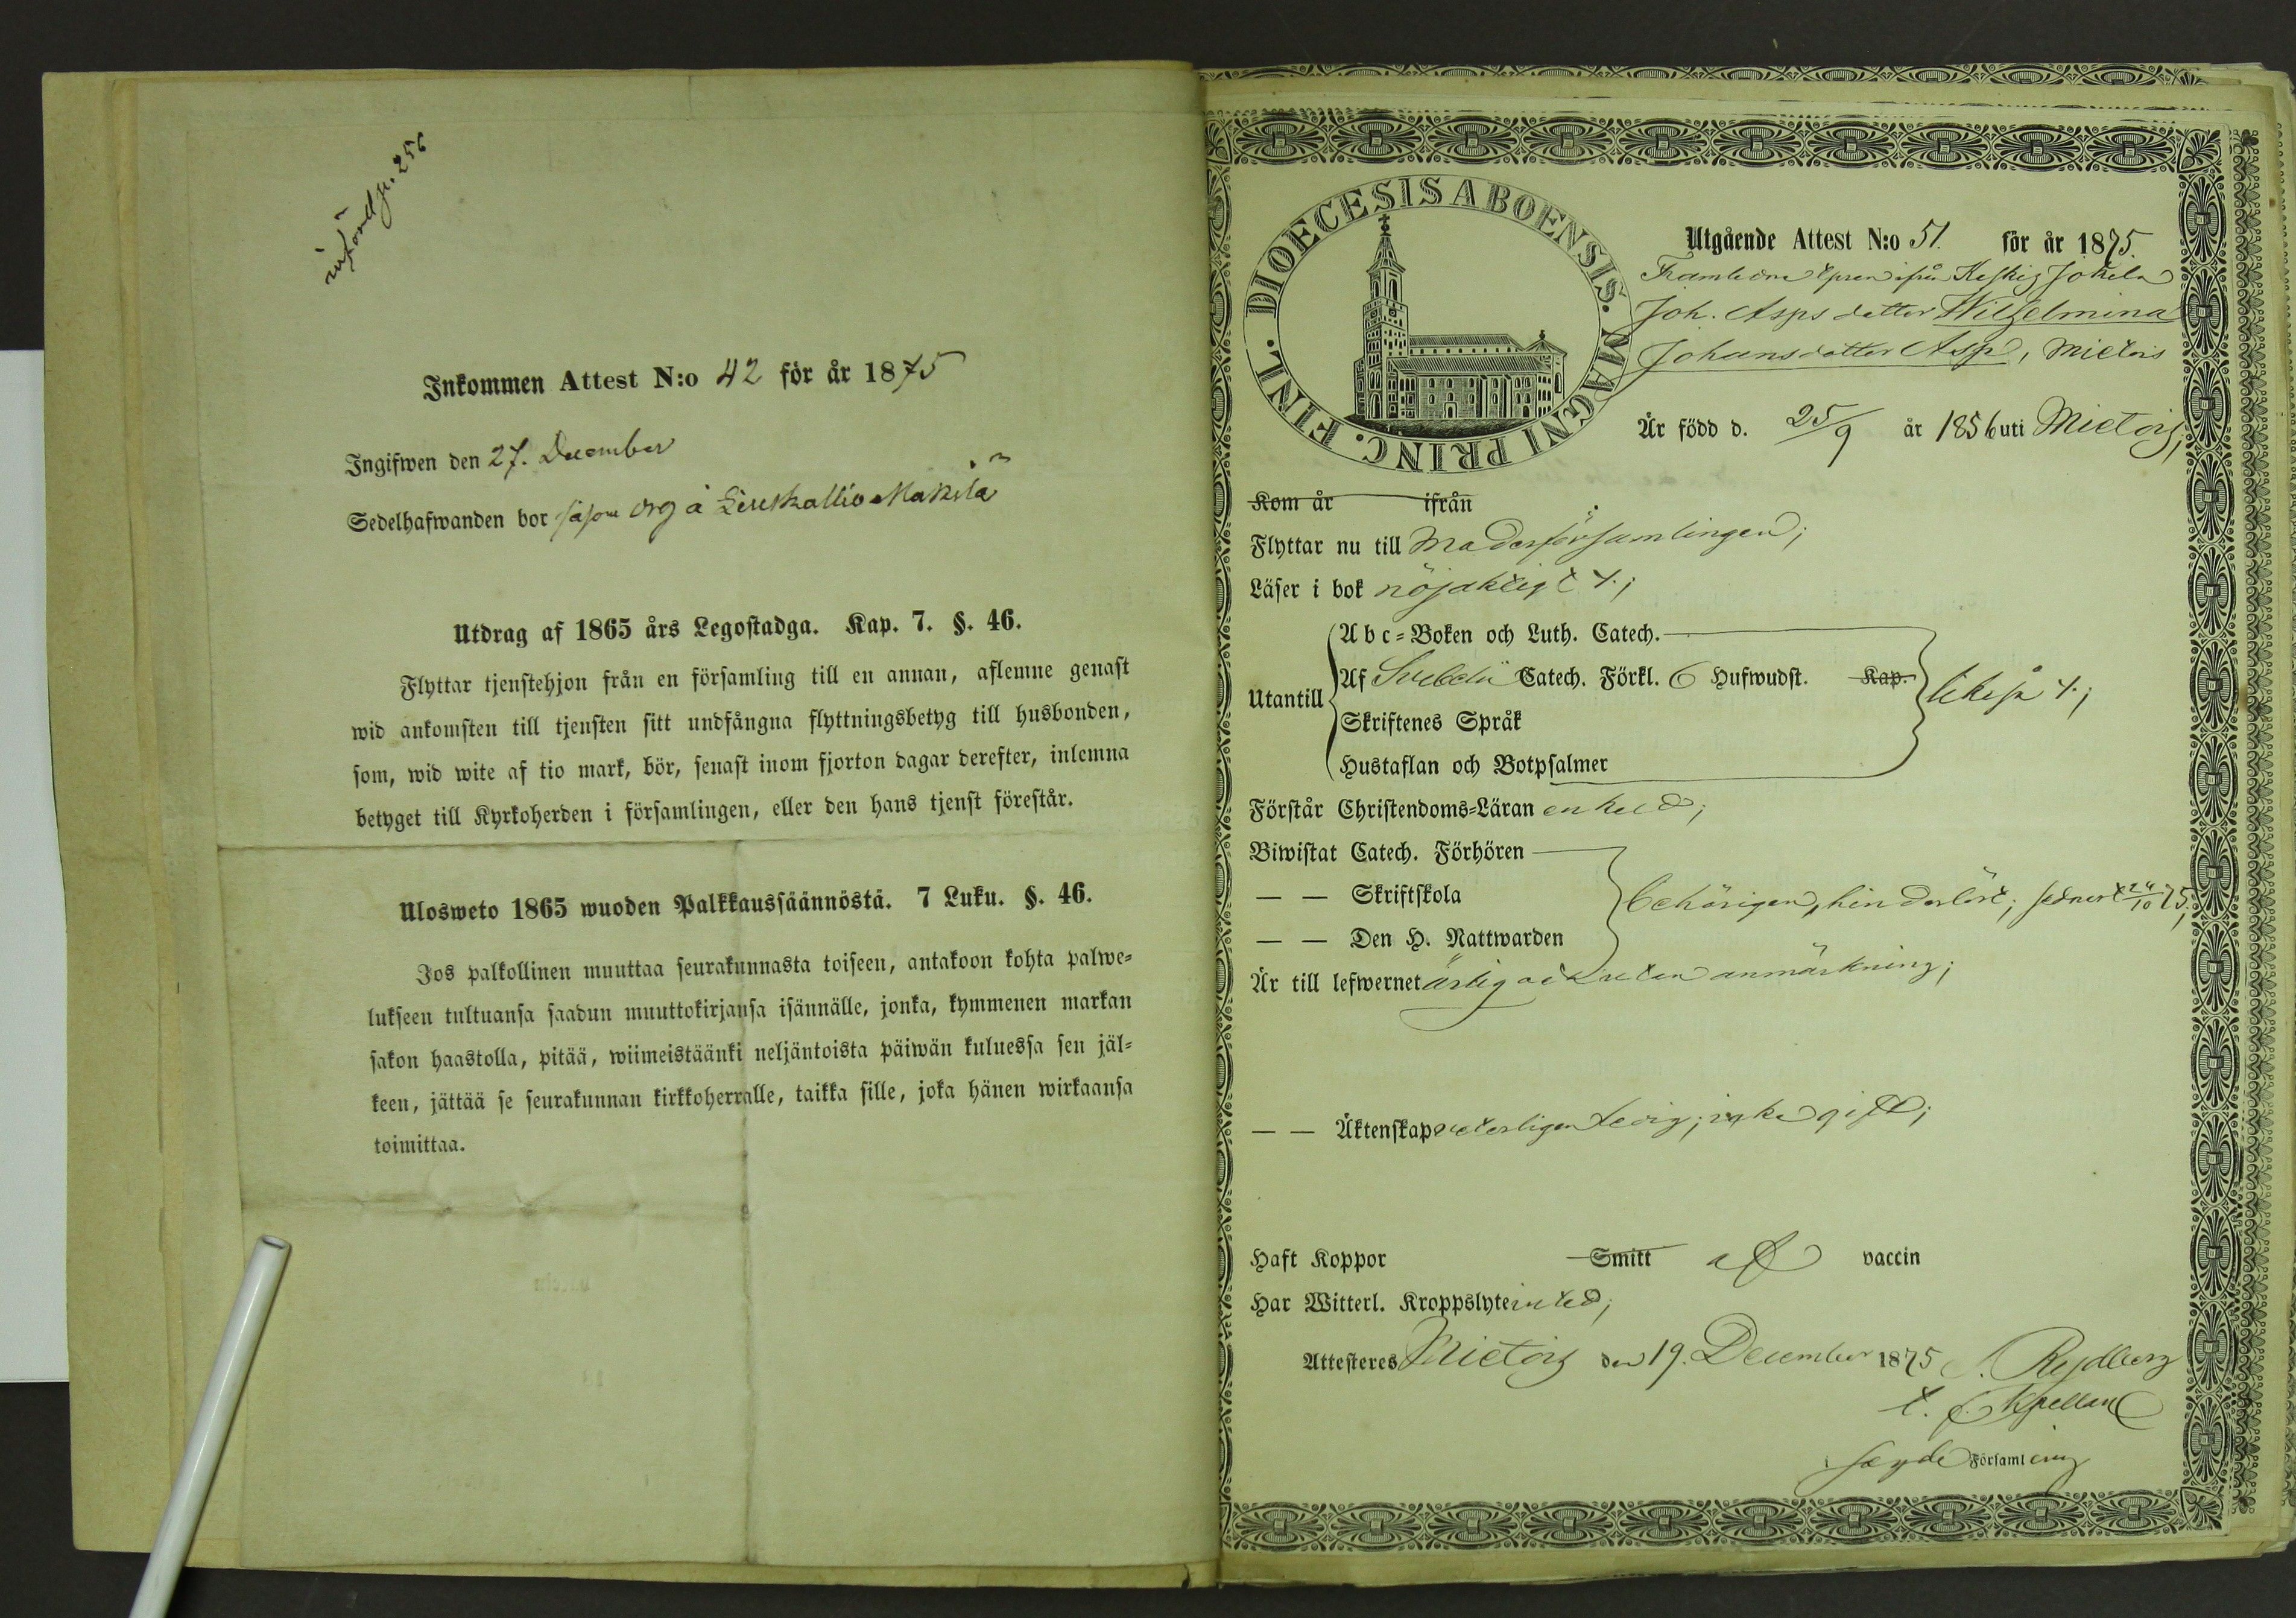 införd p. 256
Inkommen Attest N:o 42 för år 1875
Ingifwen den 27. December
Sedelhafwanden bor såsom å Leukkallio Makila
Utdrag af 1865 års Legostadga. Kap. 7. §. 46.
Flyttar tjenstehjon från en församling till en annan, aflemne genast
wid ankomsten till tjensten sitt undfångna flyttningsbetyg till husbonden,
som, wid wite af tio mark, bör, senast inom fjorton dagar derefter, inlemna
betyget till Kyrkoherden i församlingen, eller den hans tjenst förestår.
Ulosweto 1865 wuoden Palkkaussäännöstä. 7 Luku. §. 46.
Jos palkollinen muuttaa seurakunnasta toiseen, antakoon kohta palwe=
lukseen tultuansa saadun muuttokirjansa isännälle, jonka, kymmenen markan
sakon haastolla, pitää, wiimeistäänki neljäntoista päiwän kuluessa sen jäl=
keen, jättää se seurakunnan kirkkoherralle, taikka sille, joka hänen wirkaansa
toimittaa.
DIOECESIS ABOENSIS. MAGNI PRINC. FINL.
Utgående Attest N:o 51. för år 1875.
Framledne ifrån Keskis Jokela
Joh. Asps dotter Wilhelmina
Johansdotter Asp, Mietois
Är född d. 25/9 år 1856 uti Mietois;
Kom år ifrån
Flyttar nu till Moderförsamlingen;
Läser i bok nöjaktigt +;
Utantill
A b c=Boken och Luth. Catech.
Af Svebelii Catech. Förkl. 6 Hufwudst. Kap.
likaså +;
Skriftenes Språk
Hustaflan och Botpsalmer
Förstår Christendoms=Läran enkelt;
Biwistat Catech. Förhören
— — Skriftskola
behörigen, hinderlöst; sednast 24/10 75;
— — Den H. Nattwarden
Är till lefwernet ärlig och utan anmärkning;
— — Äktenskap veterligen ledig; icke gift;
Haft Koppor Smitt af vaccin
Har Witterl. Kroppslyte intet;
Attesteres Mietois den 19. December 1875 Rydberg
t. f. Kpellan
i sagde Församling